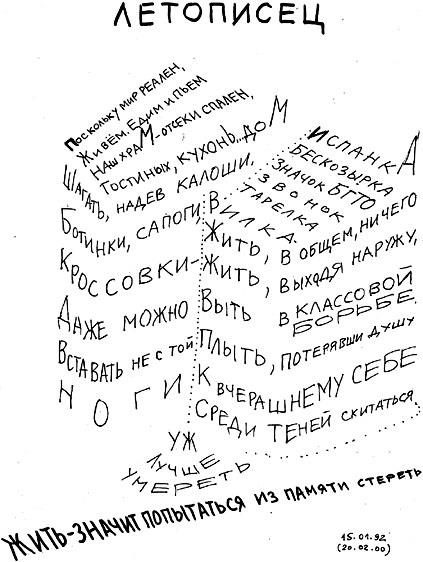 ЛЕТОПИСЕЦ
Поскольку мир реален,
Живём. Едим и пьем
Наш храМ-отсеки спален,
Гостиных, кухонЬ.. доМ
Шагать, надев калоши,
Ботинки, сапоги,
Кроссовки-
Даже можно
Вставать не с той
Ноги
ИспанкА
Бескозырка
Значок БГТО
Звонок
Тарелка
Вилка.
Жить, в общем, ничего
Жить, выходя наружу,
Выть в классовой
борьбе.
Плыть, потерявши душу
К вчерашнему себе
Среди теней скитаться.
Уж
лучше
умереть
Жить-значит попытаться из памяти стереть
15.01.92
(20.02.00)